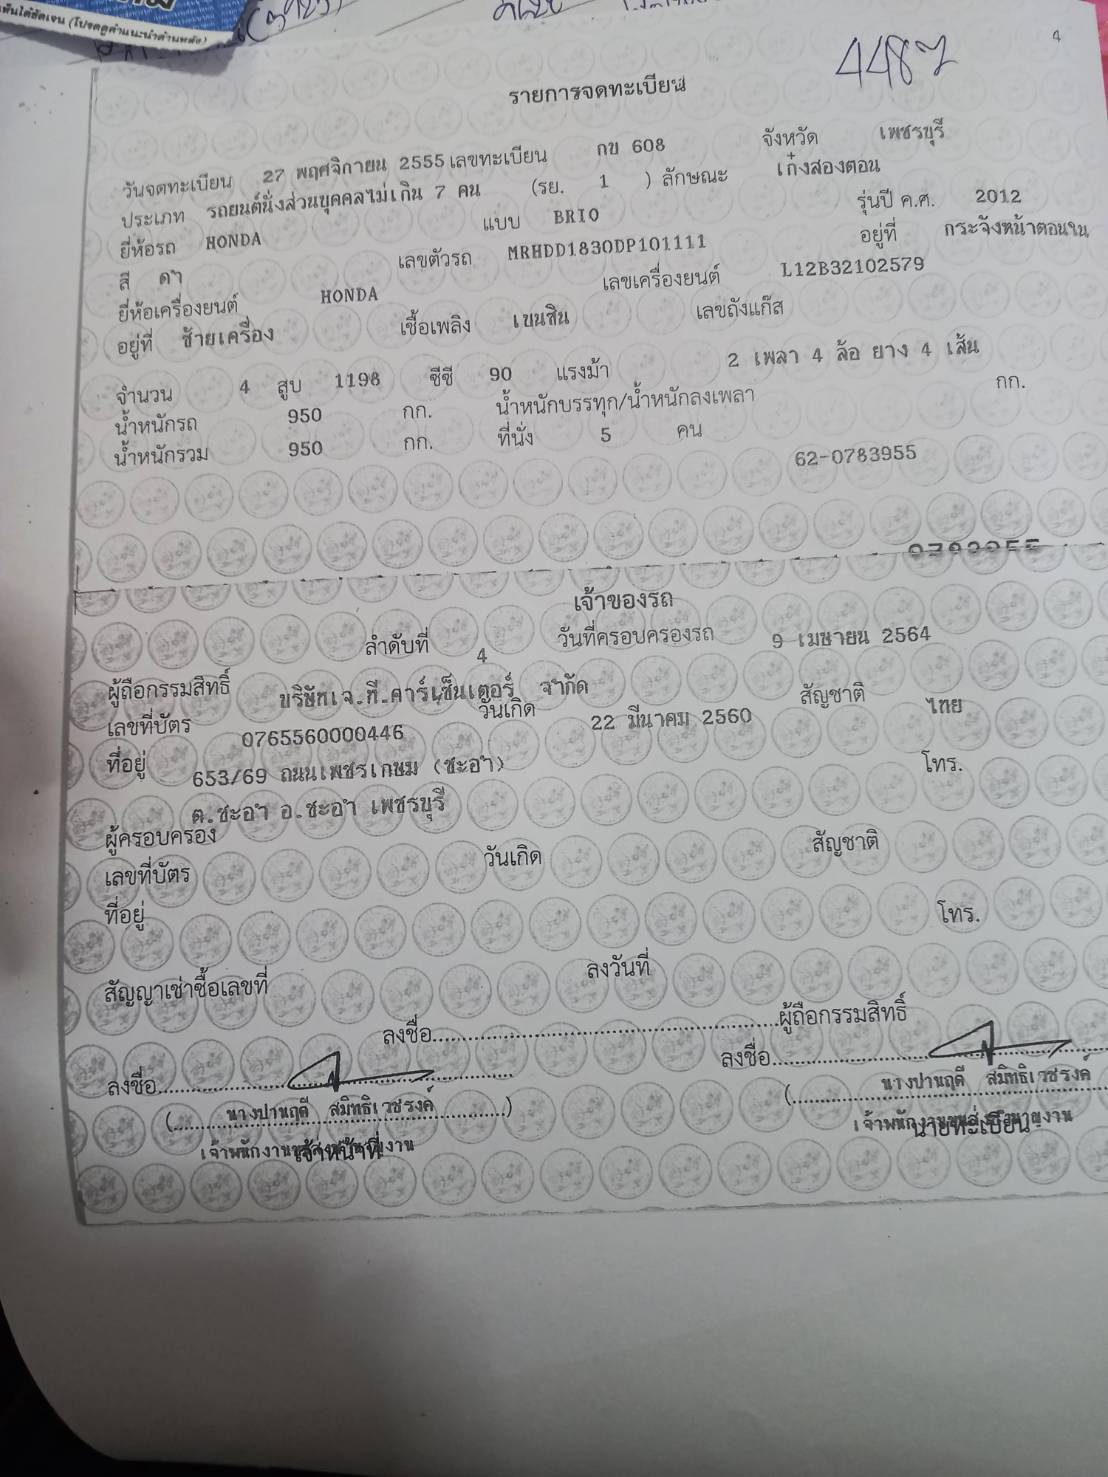 เห็นได้ชัดเจน (โปรดดูคำแนะนำด้านหลัง)
4487
4
รายการจดทะเบียน
วันจดทะเบียน 27 พฤศจิกายน 2555 เลขทะเบียน กข 608 จังหวัด เพชรบุรี
ประเภท รถยนต์นั่งส่วนบุคคลไม่เกิน 7 คน (รย. 1 ) ลักษณะ เก๋งสองตอน
ยี่ห้อรถ HONDA แบบ BRIO รุ่นปี ค.ศ. 2012
สี ดำ เลขตัวรถ MRHDD1830DP101111 อยู่ที่ กระจังหน้าตอนใน
ยี่ห้อเครื่องยนต์ HONDA เลขเครื่องยนต์ L12B32102579
อยู่ที่ ซ้ายเครื่อง เชื้อเพลิง เบนซิน เลขถังแก๊ส
จำนวน 4 สูบ 1198 ซีซี 90 แรงม้า 2 เพลา 4 ล้อ ยาง 4 เส้น
น้ำหนักรถ 950 กก. น้ำหนักบรรทุก/น้ำหนักลงเพลา กก.
น้ำหนักรวม 950 กก. ที่นั่ง 5 คน
62-0783955
เจ้าของรถ
ลำดับที่ 4 วันที่ครอบครองรถ 9 เมษายน 2564
ผู้ถือกรรมสิทธิ์ บริษัทเจ.ที.คาร์เซ็นเตอร์ จำกัด สัญชาติ ไทย
เลขที่บัตร 0765560000446 วันเกิด 22 มีนาคม 2560
ที่อยู่ 653/69 ถนนเพชรเกษม (ชะอำ) โทร.
ต.ชะอำ อ.ชะอำ เพชรบุรี
ผู้ครอบครอง
เลขที่บัตร วันเกิด สัญชาติ
ที่อยู่ โทร.
สัญญาเช่าซื้อเลขที่ ลงวันที่
ลงชื่อ............................................ผู้ถือกรรมสิทธิ์
ลงชื่อ............................................ ลงชื่อ............................................
(นางปานฤดี สมิทธิเวชรงค์) (นางปานฤดี สมิทธิเวชรงค์
เจ้าพนักงานขนส่งชำนาญงาน เจ้าพนักงานขนส่งชำนาญงาน
เจ้าหน้าที่ นายทะเบียน